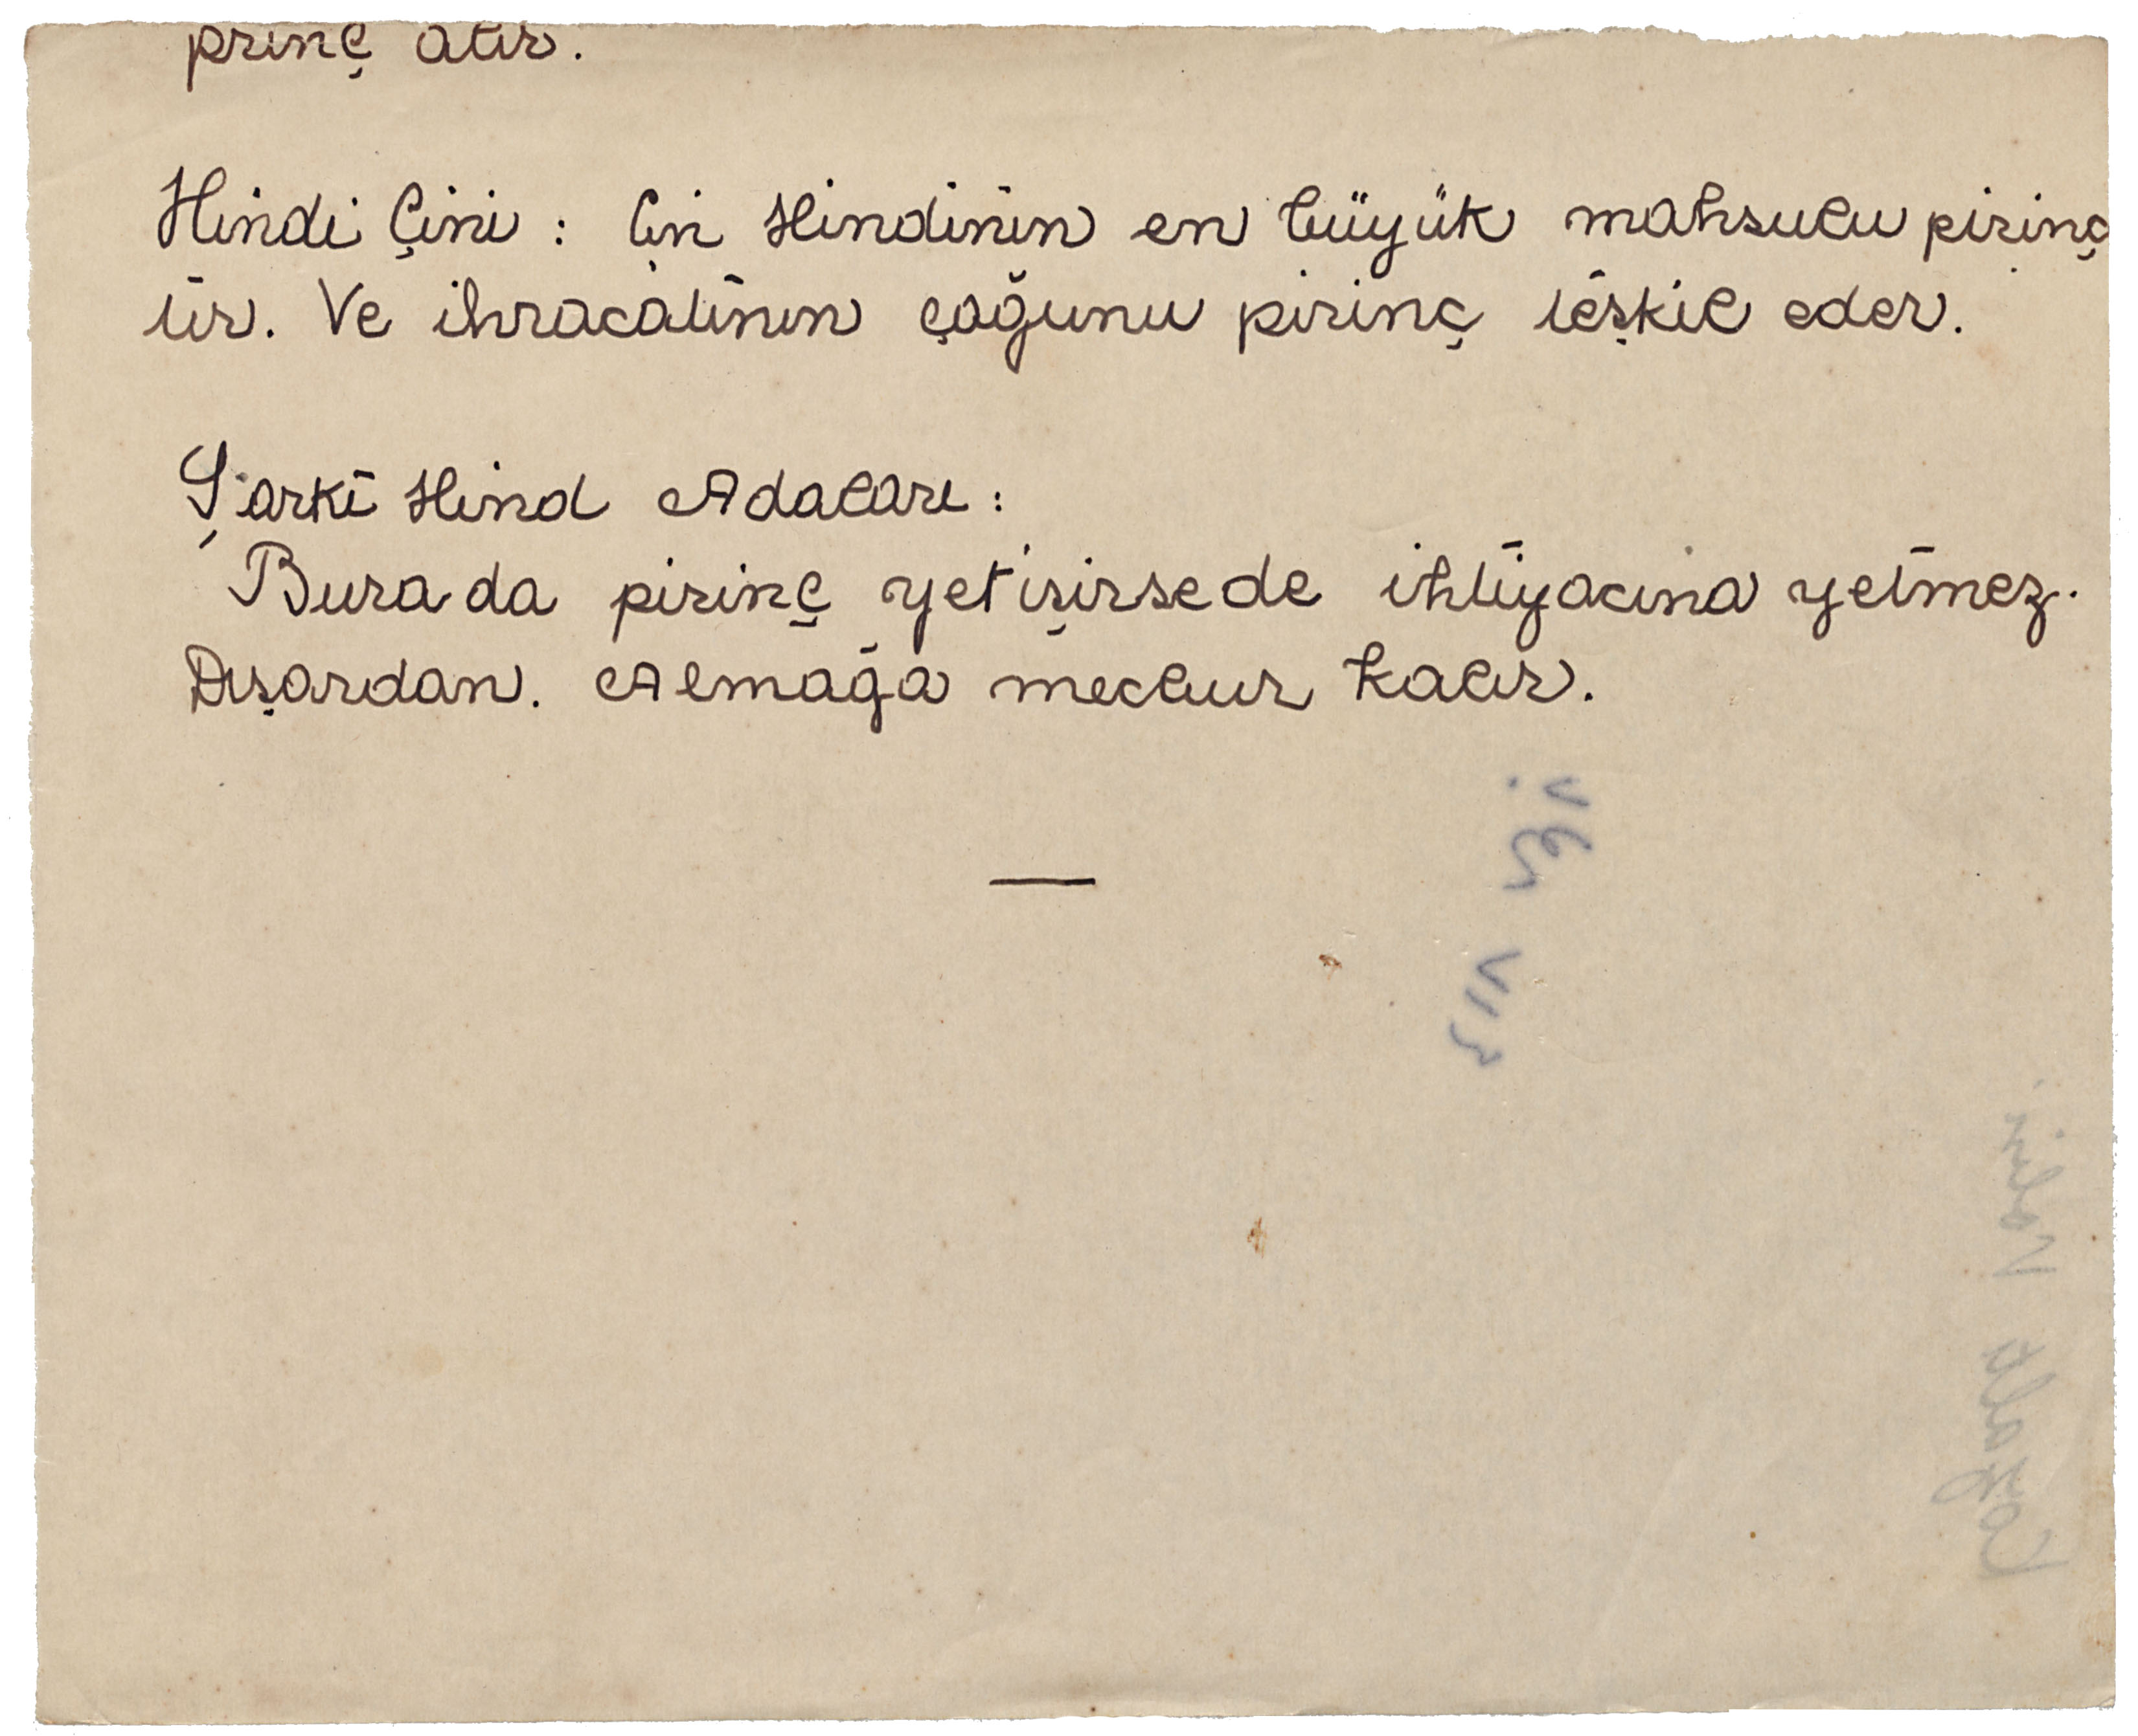 prinç alır.
Hindi Çini : Çin Hindinin en büyük mahsulu pirinç
tir. Ve ihracatının çoğunu pirinç teşkil eder.
Şarki Hind Adaları :
Burada pirinç yetişirsede ihtiyacına yetmez.
Dışardan. Almağa mecbur kalır.